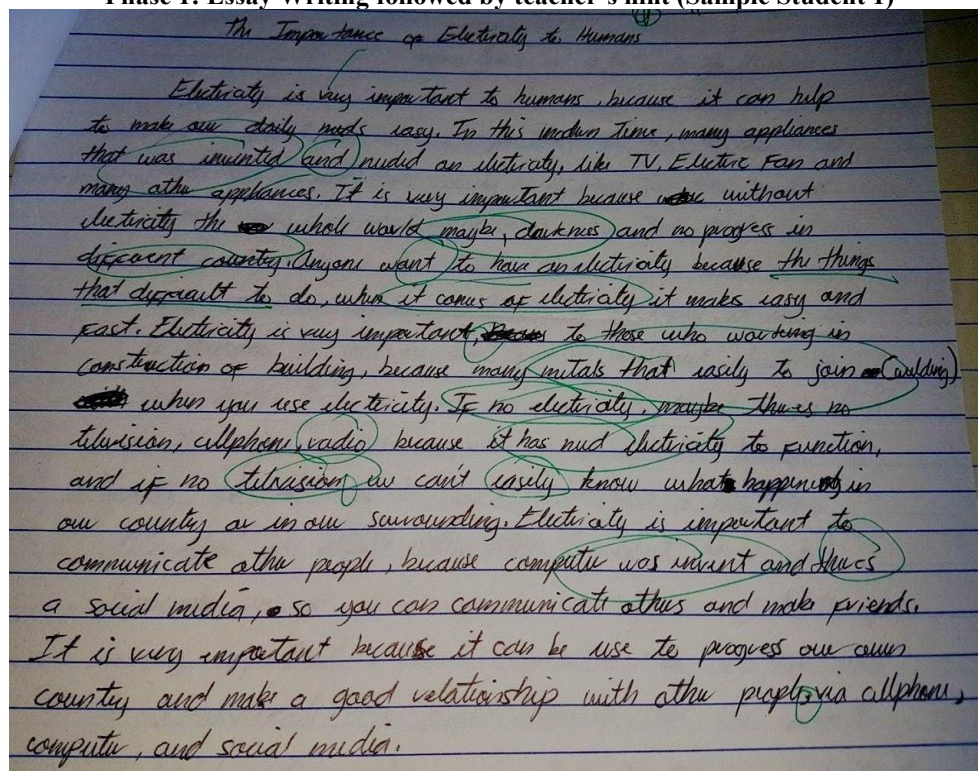 Phase 1: Essay Writing followed by teacher's hint (Sample Student 1)
The Importance of Electricity to Humans
Electricity is very important to humans, because it can help
to make our daily needs easy. In this modern Time, many appliances
that was invented and needed an electricity, like TV, Electric Fan and
many other appliances. It is very important because without
electricity the whole world maybe, darkness and no progress in
different country. Anyone want to have an electricity because the things
that difficult to do, when it comes of electricity it makes easy and
fast. Electricity is very important, to those who working in
construction of building, because many metals that easily to join (welding)
when you use electricity. If no electricity, maybe there's no
television, cellphone, radio because it has need electricity to function,
and if no television, we can't easily know what happening in
our country or in our sorrounding. Electricity is important to
communicate other people, because computer was invent and there's
a social media, so you can communicate others and make friends.
It is very important because it can be use to progress our own
country and make a good relationship with other people, via cellphone,
computer, and social media.